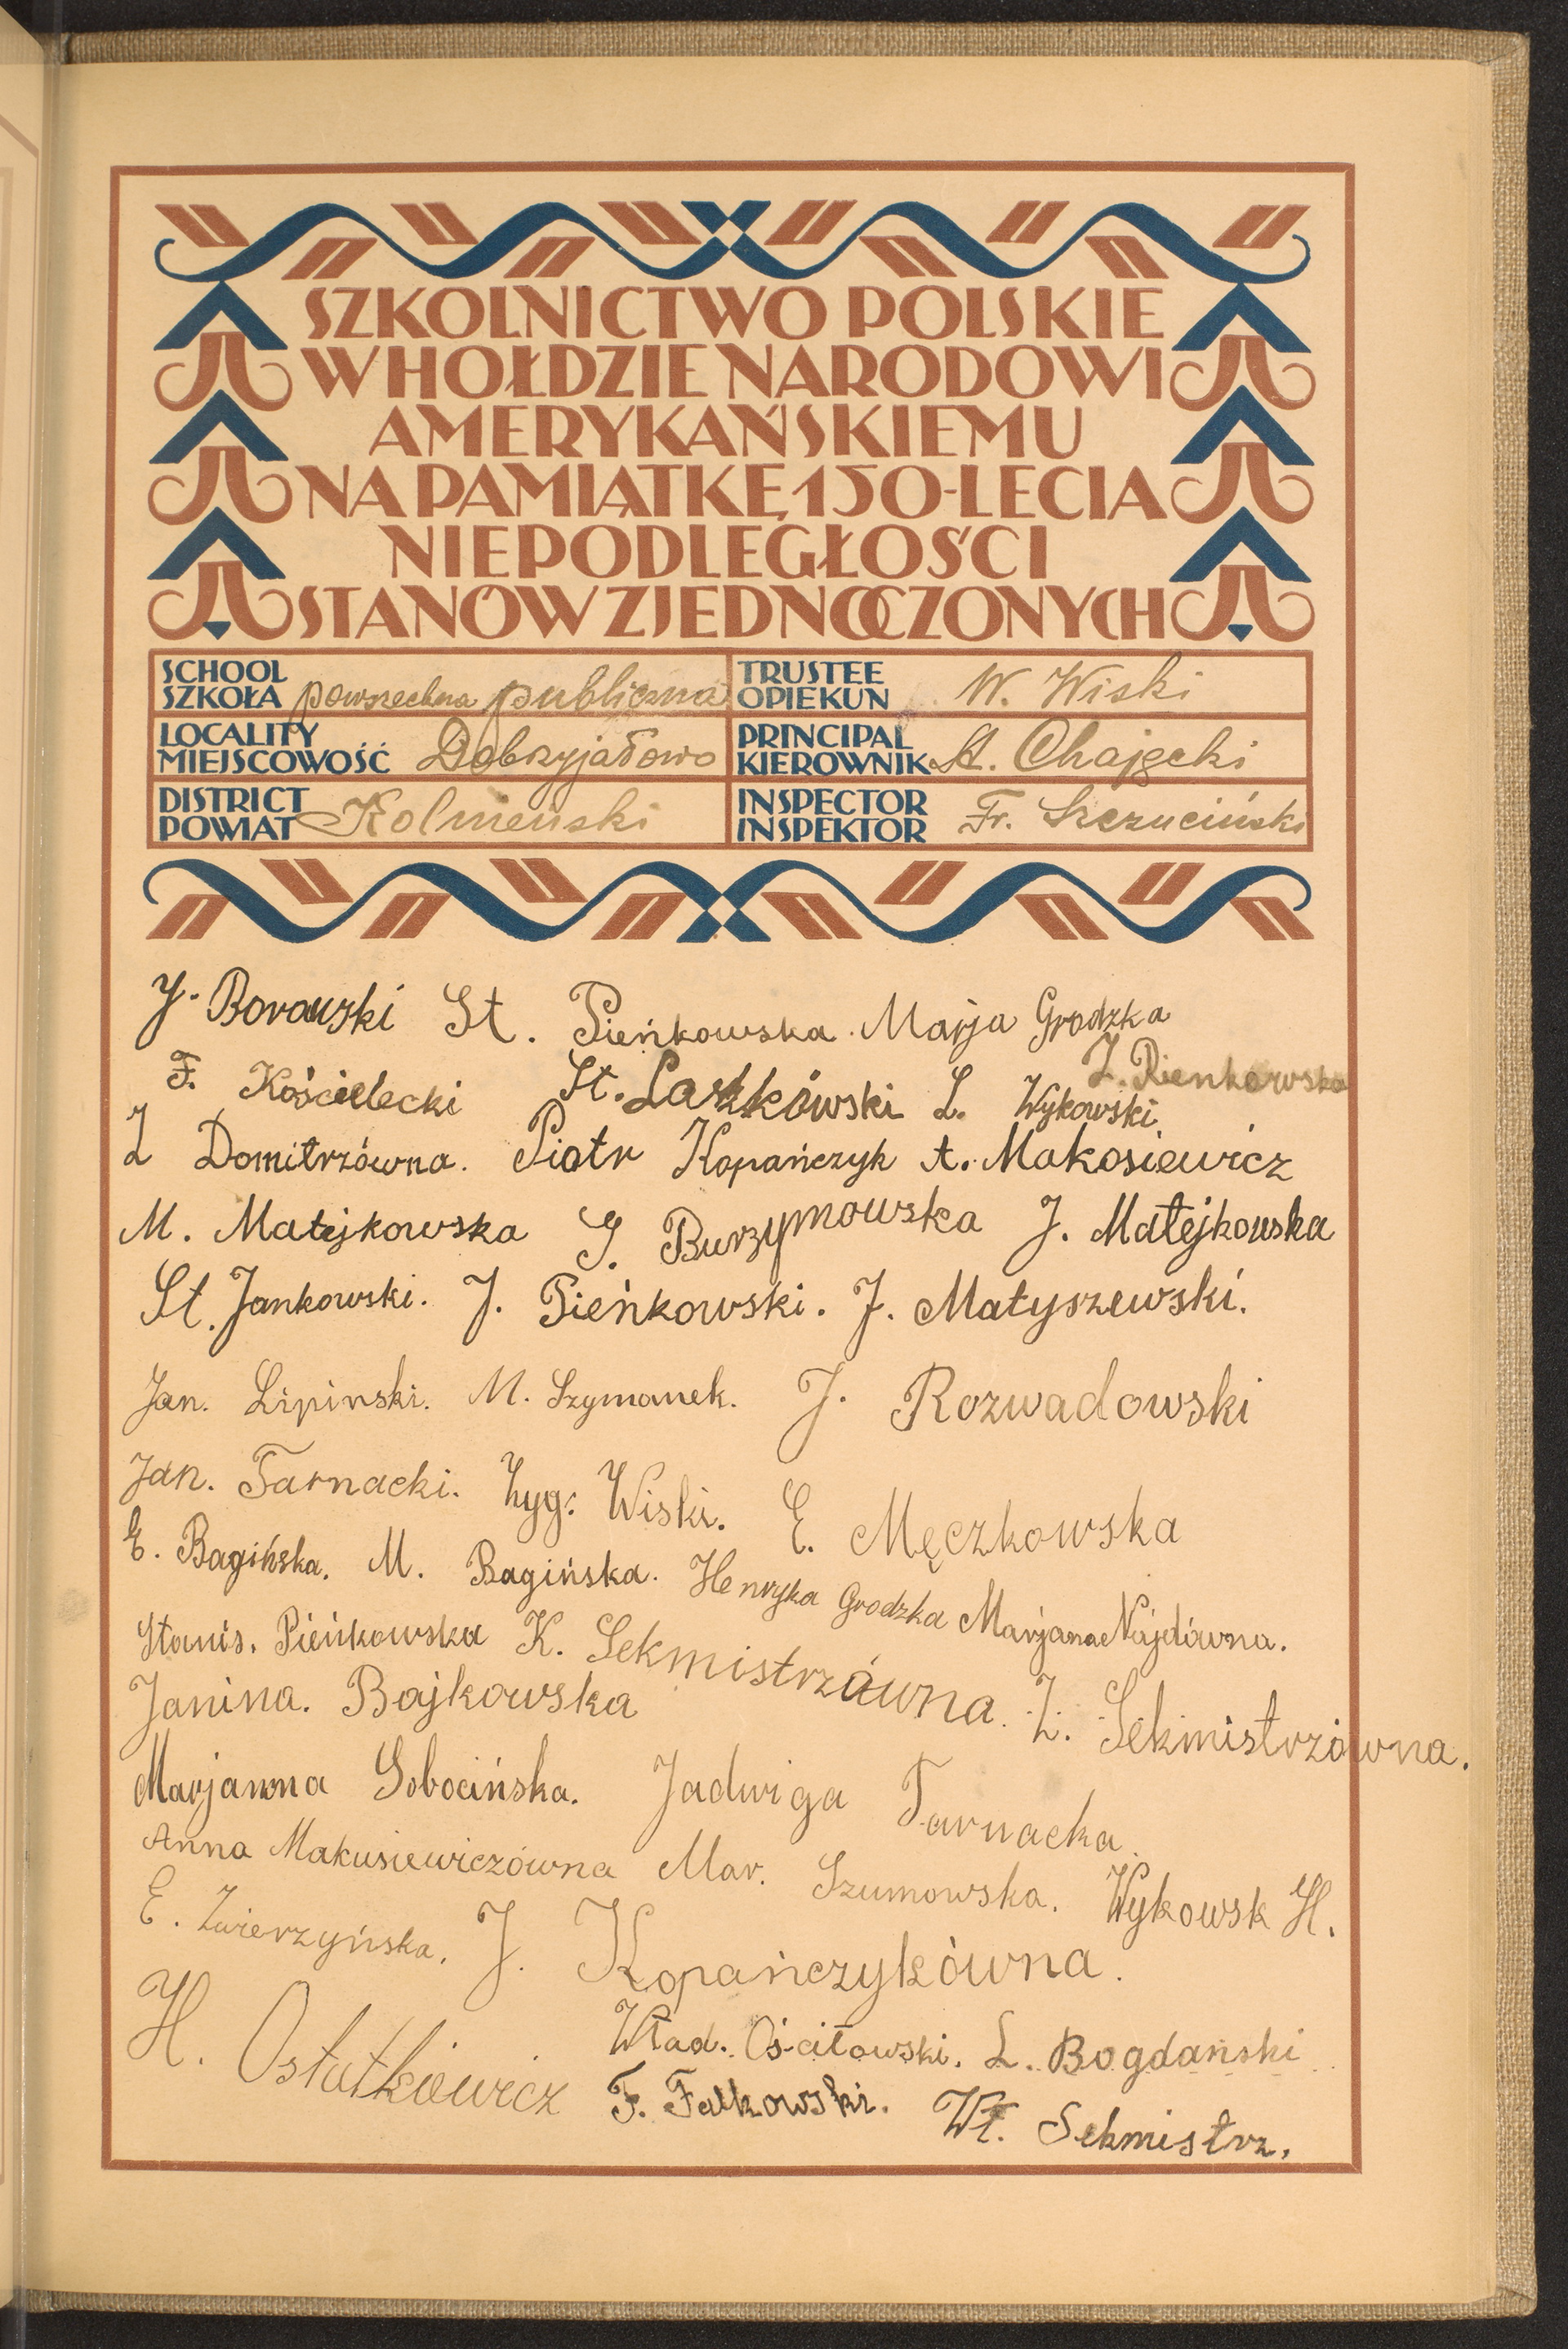 SZKOLNICTWO POLSKIE
W HOŁDZIE NARODOWI
AMERYKAŃSKIEMU
NA PAMIĄTKĘ 150-LECIA
NIEPODLEGŁOŚCI
STANÓW ZJEDNOCZONYCH
SCHOOL
SZKOŁA powszechna publiczna
TRUSTEE
OPIEKUN W. Wiski
LOCALITY
MIEJSCOWOŚĆ Dobrzyjałowo
PRINCIPAL
KIEROWNIK A. Chajęcki
DISTRICT
POWIAT Kolneński
INSPECTOR
INSPEKTOR Fr. Szczuciński
J. Borawski St. Pieńkowska. Marja Grodzka
F. Kościelecki St. Laskkówski L. Wykowski. Z. Pienkowska
Z Domitrzówna. Piotr Kopańczyk A. Makosiewicz
M. Matejkowska J. Burzymowska J. Matejkowska
St. Jankowski. J. Pieńkowski. J. Matyszewski.
Jan. Lipinski. M. Szymanek. J. Rozwadowski
Jan. Tarnacki. Zyg: Wiski. E. Męczkowska
E. Bagińska. M. Bagińska. Henryka Grodzka Marjana Najdówna.
Stanis. Pieńkowska K. Sekmistrzówna. Z. Sekmistrzówna.
Janina. Bajkowska
Marjanna Sobocińska. Jadwiga Tarnacka.
Anna Makusiewiczówna Mar. Szumowska. Wykowsk H.
E. Zwierzyńska. J. Kopańczykówna.
H. Ostatkiewicz Wład. Ościłowski. L. Bogdański
F. Falkowski. Wł. Sekmistrz.